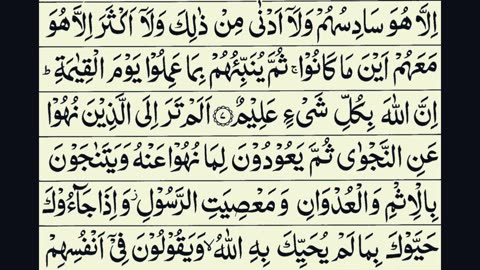 اِلَّا هُوَ سَادِسُهُمْ وَلَآ اَدْنٰى مِنْ ذٰلِكَ وَلَآ اَكْثَرَ اِلَّا هُوَ
مَعَهُمْ اَيْنَ مَا كَانُوْا ۚ ثُمَّ يُنَبِّئُهُمْ بِمَا عَمِلُوْا يَوْمَ الْقِيٰمَةِ ؕ
اِنَّ اللّٰهَ بِكُلِّ شَىْءٍ عَلِيْمٌ ۝۷ اَلَمْ تَرَ اِلَى الَّذِيْنَ نُهُوْا
عَنِ النَّجْوٰى ثُمَّ يَعُوْدُوْنَ لِمَا نُهُوْا عَنْهُ وَيَتَنٰجَوْنَ
بِالْاِثْمِ وَالْعُدْوَانِ وَمَعْصِيَتِ الرَّسُوْلِ ؗ وَاِذَا جَآءُوْكَ
حَيَّوْكَ بِمَا لَمْ يُحَيِّكَ بِهِ اللّٰهُ ۙ وَيَقُوْلُوْنَ فِىْٓ اَنْفُسِهِمْ